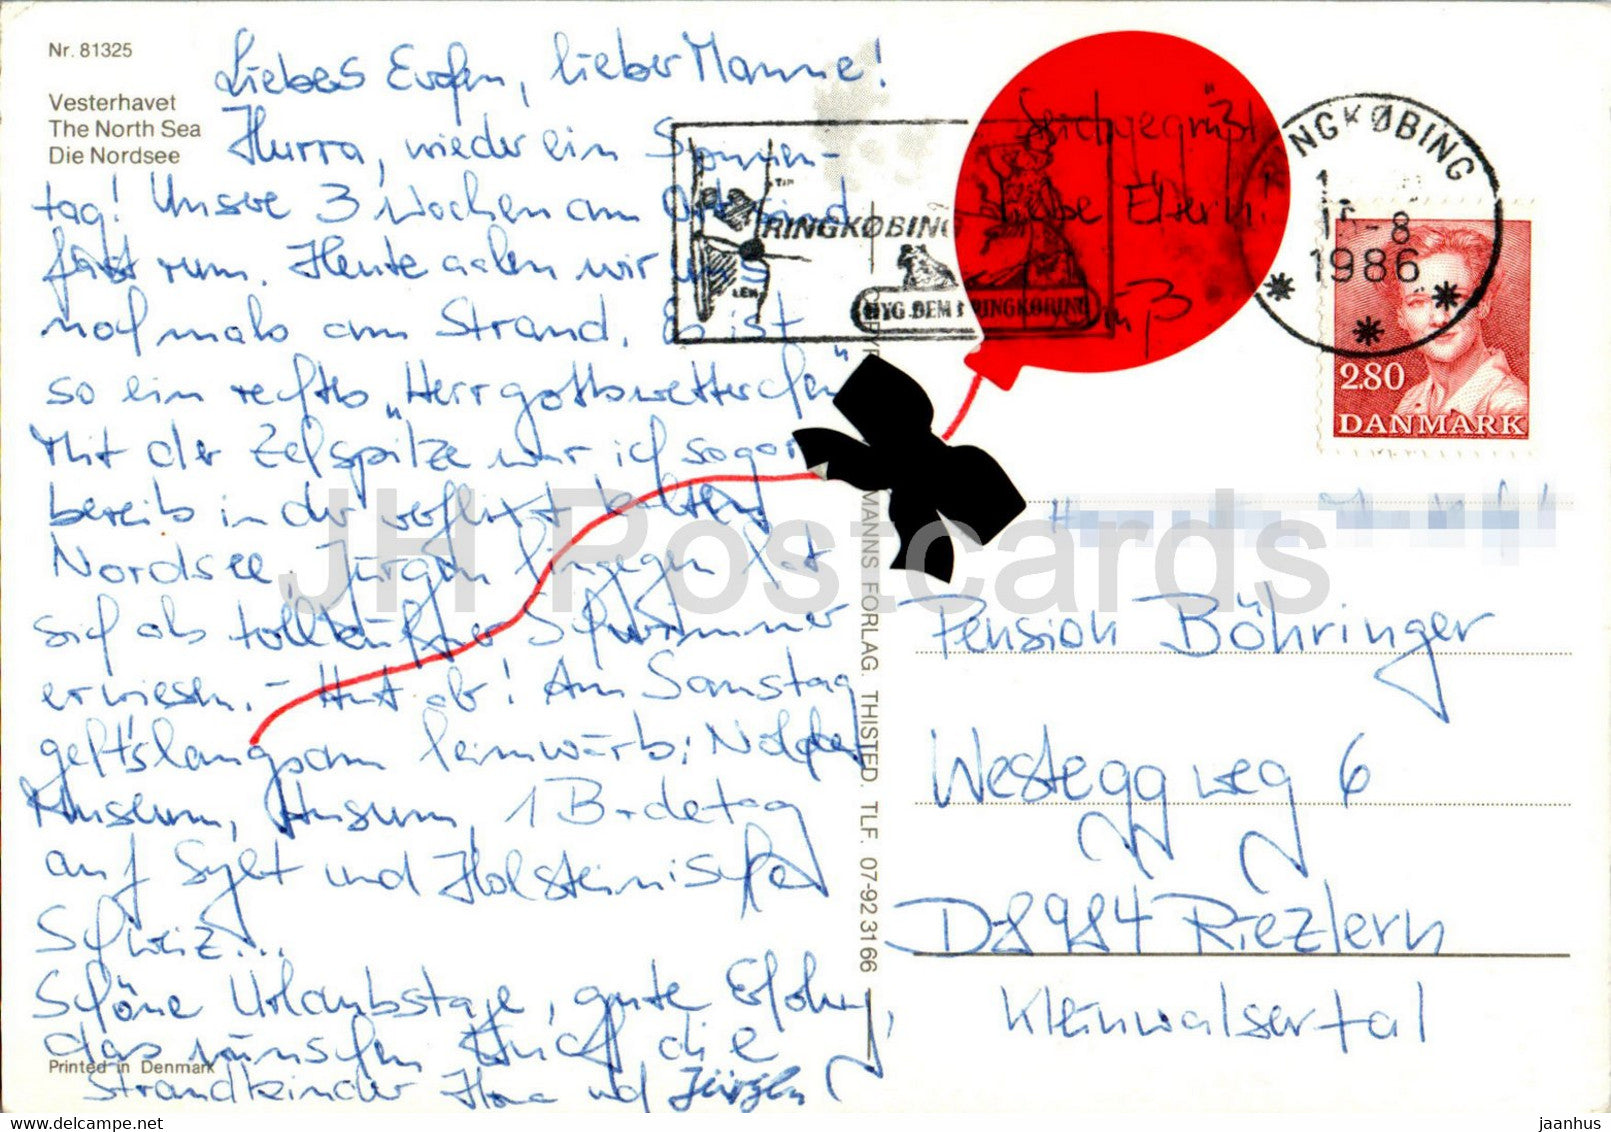 Nr. 81325
Vesterhavet
The North Sea
Die Nordsee
Liebes Evchen, lieber Manne!
Hurra, wieder ein Sonnen-
tag! Unsere 3 Wochen am sind
fast rum. Heute aalen wir uns
nochmals am Strand. Es ist
so ein rechtes „Herrgottswetterchen"
Mit der Zehspitze war ich sogar
bereits in der verflixt kalten
Nordsee. Jürgen hingegen hat
sich als tollkühner Schwimmer
erwiesen. - Hut ab! Am Samstag
geht's langsam heimwärts: Nolde
Museum, Husum, 1 Badetag
auf Sylt und Holsteinische
Schweiz...
Schöne Urlaubstage, gute Erholung,
das wünschen Euch die
Strandkinder Ilona und Jürgen
Printed in Denmark
Seid gegrüßt
liebe Eltern!
RINGKØBING
BYG DEM I RINGKØBING
RINGKØBING
15-8
1986
2.80
DANMARK
MANNS FORLAG. THISTED. TLF. 07-923166
Pension Böhringer
Westeggweg 6
D-8984 Riezlern
Kleinwalsertal
JH Postcards
jaanhus